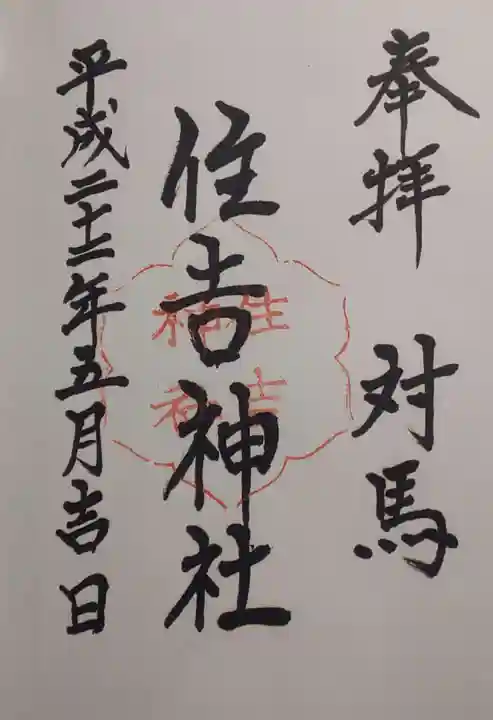 奉拝 対馬
住吉神社
住吉
神社
平成二十二年五月吉日